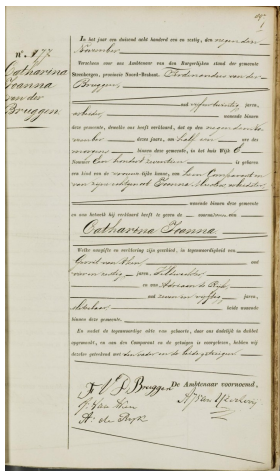 N.º 177
Catharina
Joanna
van der
Bruggen
In het jaar een duizend acht honderd een en zestig, den negenden
November
Verscheen voor ons Ambtenaar van den Burgerlijken stand der gemeente
Steenbergen, provincie Noord-Braband. Ferdinandus van der
Bruggen
oud vijfendertig jaren,
arbeider wonende binnen
deze gemeente, dewelke ons heeft verklaard, dat op den negenden
November dezes jaars, om half vier ure des
morgens binnen deze gemeente, in het huis Wijk
Nummer Een honderd zeventien is geboren
een kind van de vrouwelijke kunne, van hem Comparant en
van zijne echtgenoot Joanna arbeidster
wonende binnen deze gemeente
en aan hetwelk hij verklaard heeft te geven de voornamen van
Catharina Joanna.
Welke aangifte en verklaring zijn geschied, in tegenwoordigheid van
oud
jaren, Veldwachter
en van Adriaan de Rijk
oud zeven en vijftig jaren,
beide wonende
binnen deze gemeente.
En wordt de tegenwoordige akte van geboorte, daar van dadelijk in dubbel
opgemaakt, en aan den Comparant en de getuigen is voorgelezen, hebben wij
dezelve geteekend met den Vader en de beide getuigen
F. V. D. Bruggen De Ambtenaar voornoemd,
A. de Rijk